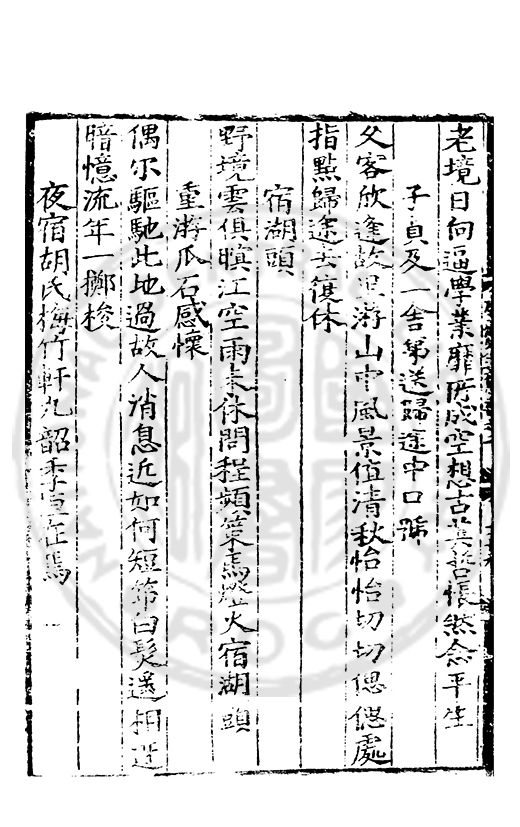 老境日向逼學業靡所成空想古英哲悵然念平生
子貞及一舍弟送歸途中口號
久客欣逢故里游山中風景值清秋怡怡切切偲偲處
指點歸途去復休
宿湖頭
野境雲俱暝江空雨未休問程頻策馬燈火宿湖頭
重游瓜石感懷
偶尔驅馳此地過故人消息近如何短節白髮遥相近
暗憶流年一擲梭
夜宿胡氏梅竹軒九韶季